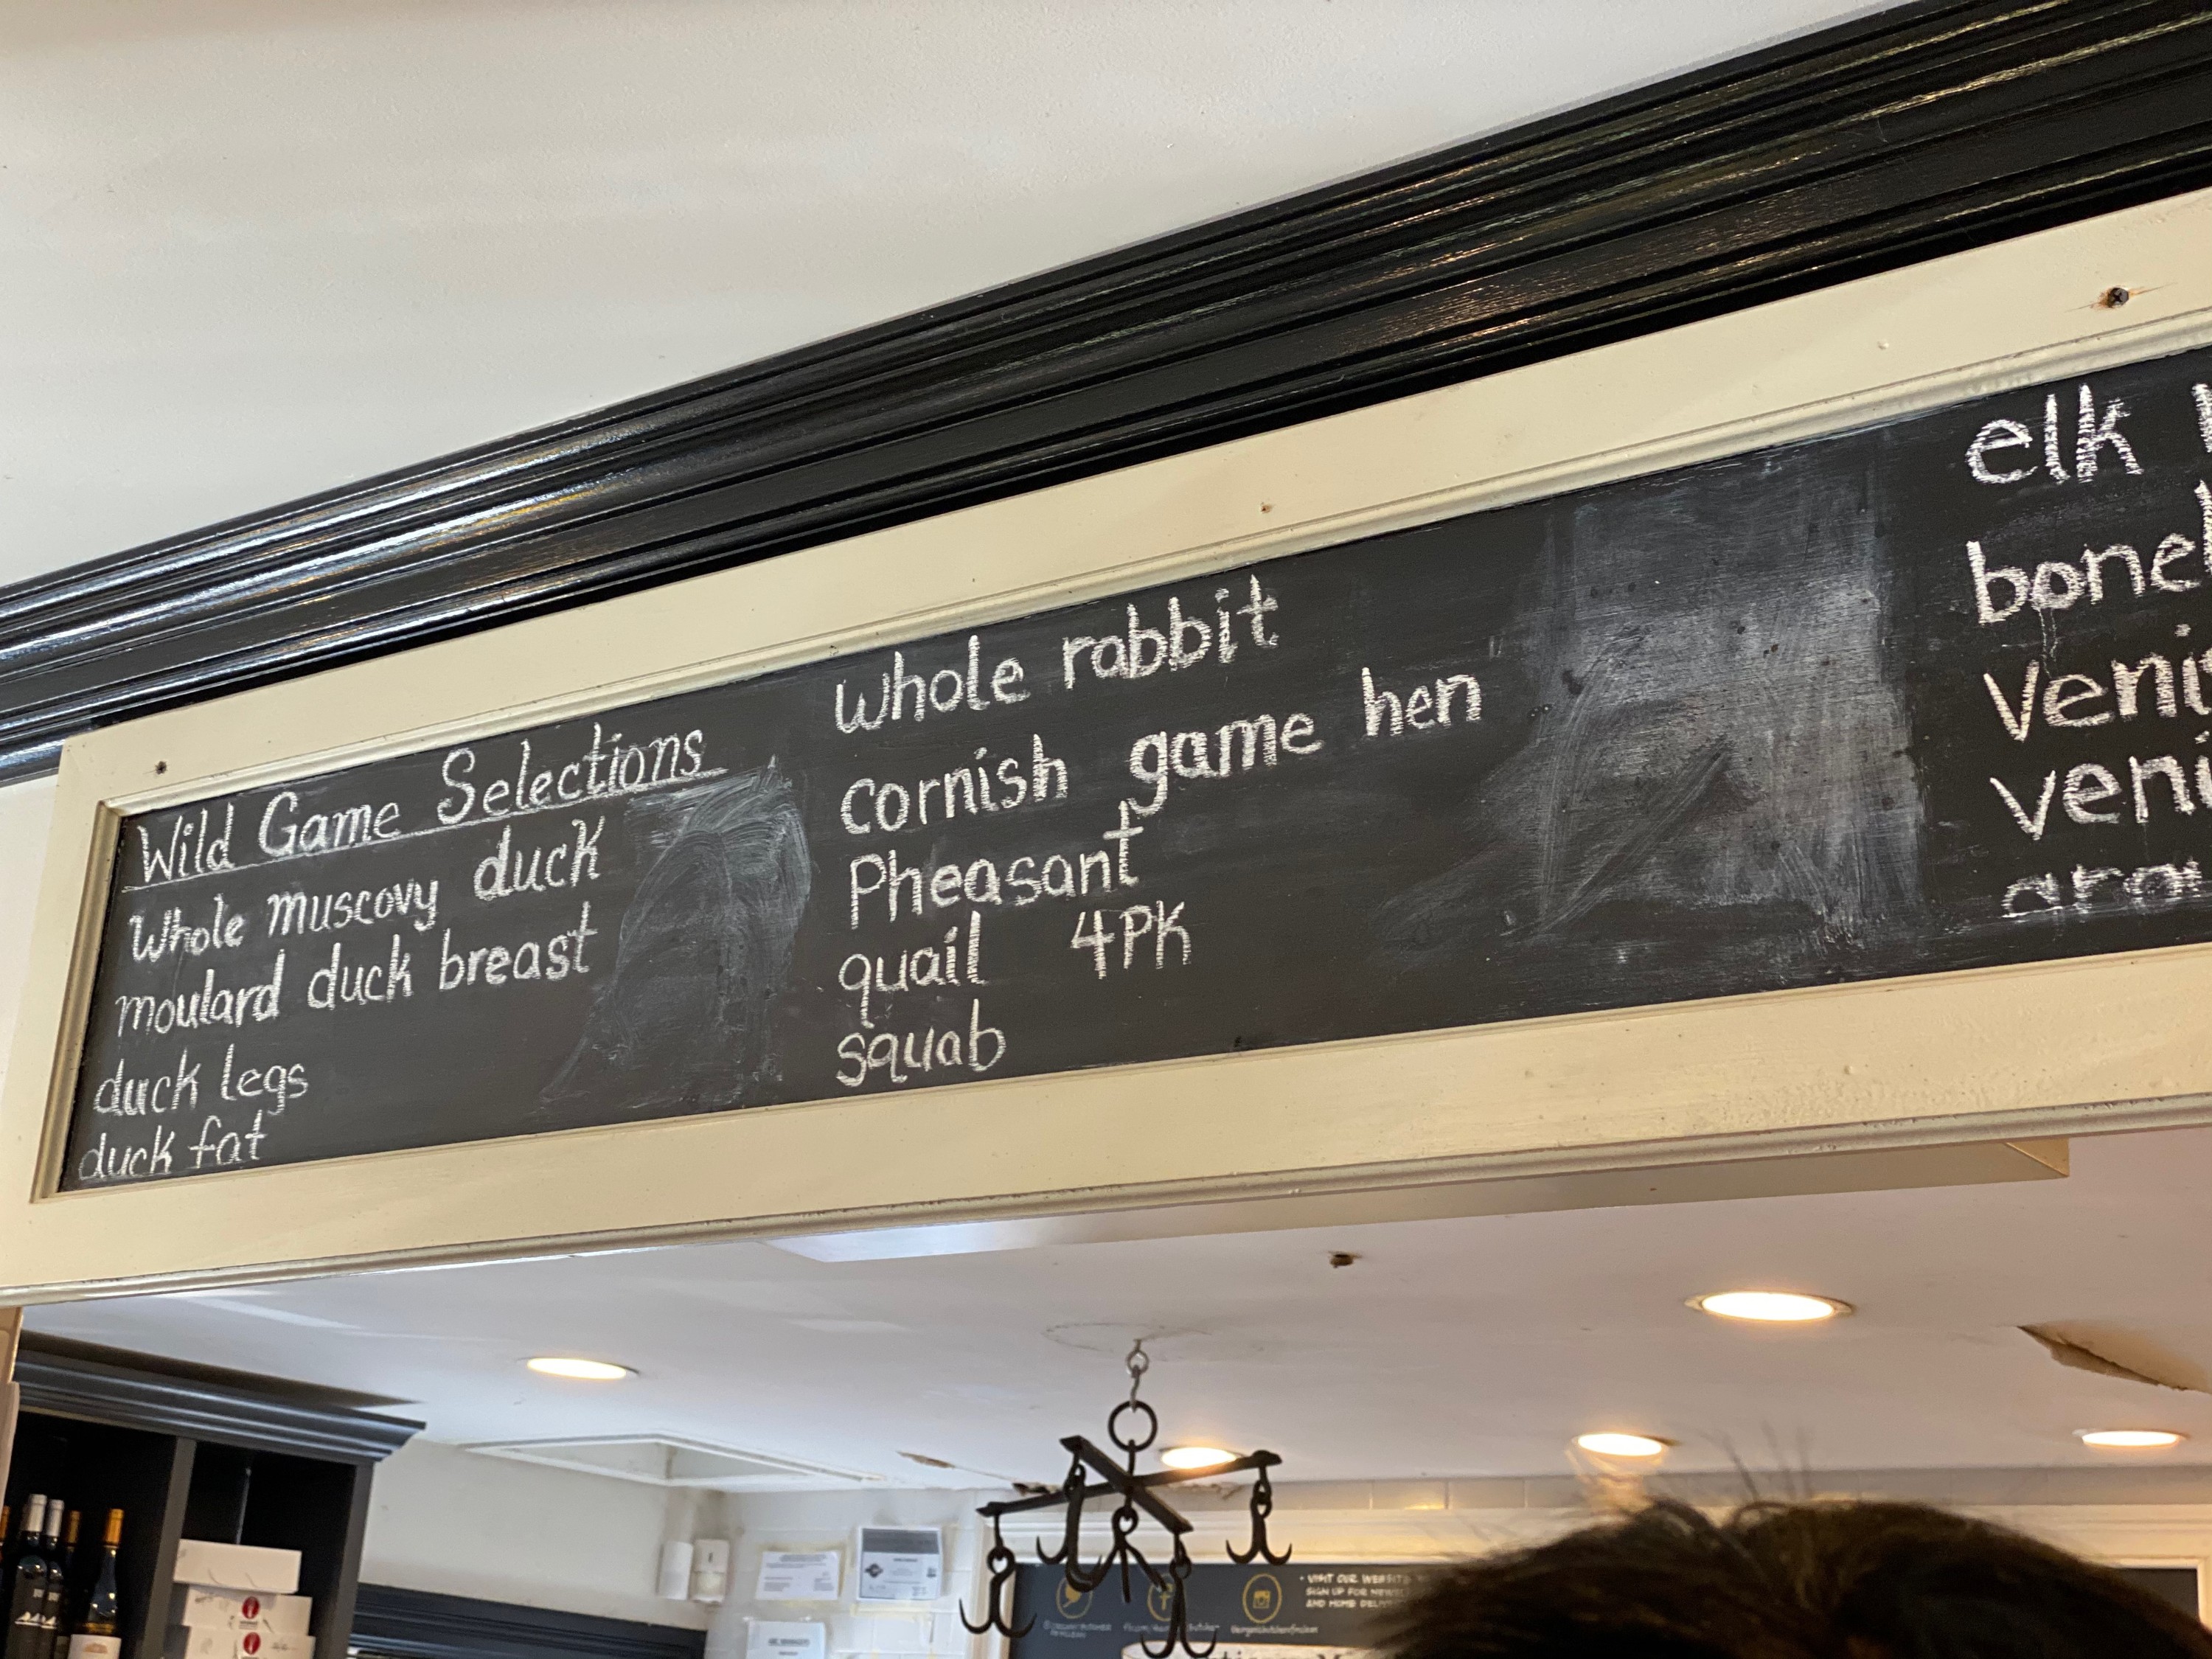 Wild Game Selections
Whole Muscovy duck
moulard duck breast
duck legs
duck fat
Whole rabbit
Cornish game hen
Pheasant
quail 4PK
squab
elk
VISIT OUR WEBSITE
SIGN UP FOR